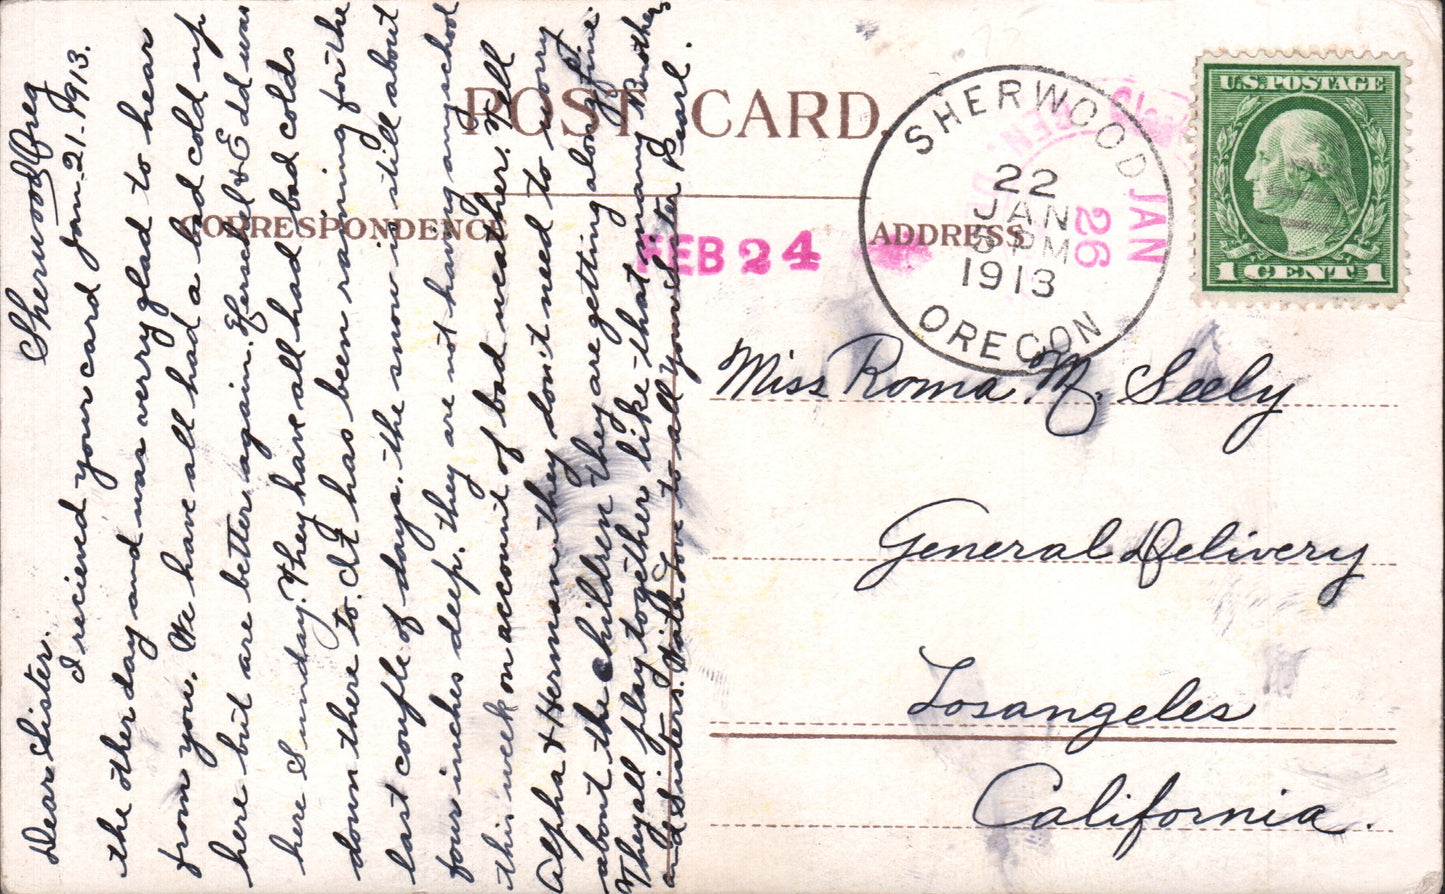 POST CARD.
CORRESPONDENCE
ADDRESS
SHERWOOD
22
JAN
5 PM
1913
OREGON
JAN
26
FEB 24
U.S. POSTAGE
1 CENT 1
Miss Roma M. Seely
General Delivery
Losangeles
California.
Sherwood Oreg
Jan. 21. 1913.
Dear Sister.
I recieved your card
the other day and was verry glad to hear
from you. We have all had a bad cold up
here but are better again. Herschel & E dd was
here Sunday. They have all had bad colds
down there to. It has been raining for the
last coufle of days. the snow is still about
four inches deep. they are not having any school
this week on account of bad weather. Yell
Alpha & Herman they don't need to worry
about the children they are getting along fine.
They all play together like that many Brothers
and Sisters. With Love to all your sister Pearl.